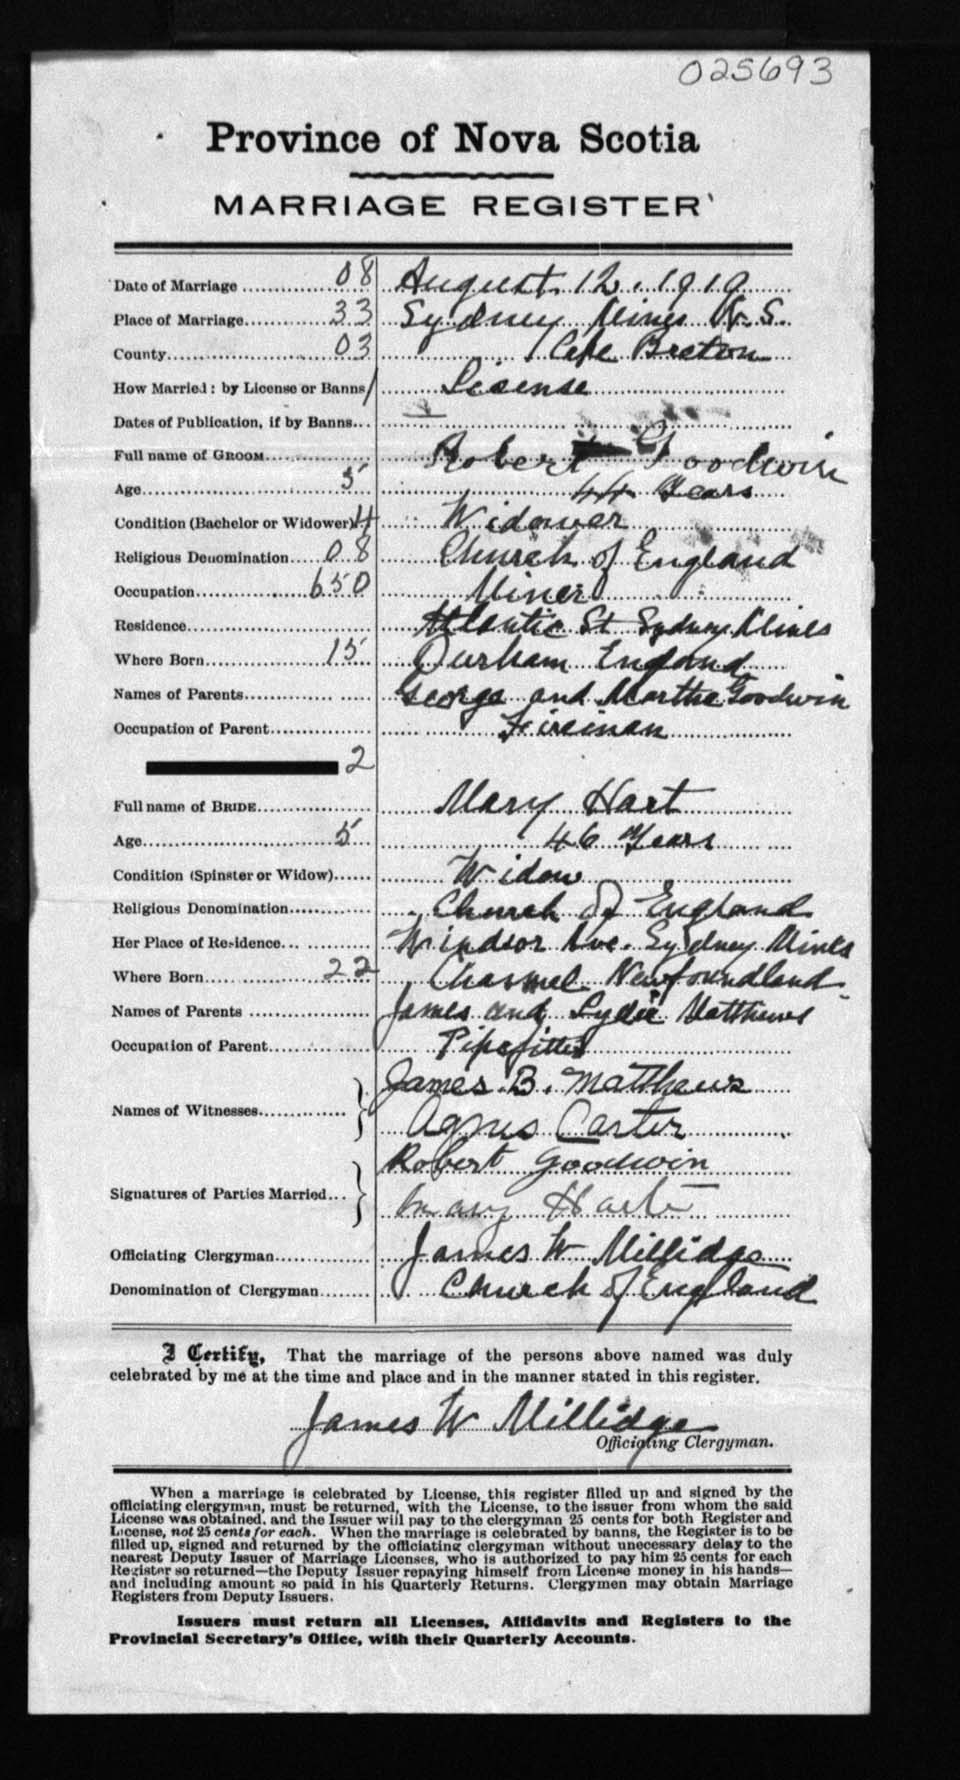 025693
Province of Nova Scotia
MARRIAGE REGISTER
Date of Marriage 08 August 12. 1919
Place of Marriage 33 Sydney Mines N. S.
County 03 Cape Breton
How Married: by License or Banns / Lisense
Dates of Publication, if by Banns
Full name of GROOM Robert Goodwin
Age 5 44 Years
Condition (Bachelor or Widower) 4 Widower
Religious Denomination 08 Church of England
Occupation 650 Miner
Residence Atlantic St Sydney Mines
Where Born 15 Durham England
Names of Parents George and Martha Goodwin
Occupation of Parent Fireman
2
Full name of BRIDE Mary Hart
Age 5 46 Years
Condition (Spinster or Widow) Widow
Religious Denomination Church of England
Her Place of Residence Windsor Ave. Sydney Mines
Where Born 22 Newfoundland
Names of Parents James and Matthews
Occupation of Parent Pipefitter
James B. Matthews
Names of Witnesses
Agnes Carter
Robert Goodwin
Signatures of Parties Married
Mary Harte
Officiating Clergyman James W Millidge
Denomination of Clergyman Church of England
I Certify, That the marriage of the persons above named was duly
celebrated by me at the time and place and in the manner stated in this register.
James W Millidge
Officiating Clergyman.
When a marriage is celebrated by License, this register filled up and signed by the
officiating clergyman, must be returned, with the License, to the issuer from whom the said
License was obtained, and the Issuer will pay to the clergyman 25 cents for both Register and
License, not 25 cents for each. When the marriage is celebrated by banns, the Register is to be
filled up, signed and returned by the officiating clergyman without unnecessary delay to the
nearest Deputy Issuer of Marriage Licenses, who is authorized to pay him 25 cents for each
Register so returned—the Deputy Issuer repaying himself from License money in his hands—
and including amount so paid in his Quarterly Returns. Clergymen may obtain Marriage
Registers from Deputy Issuers.
Issuers must return all Licenses, Affidavits and Registers to the
Provincial Secretary's Office, with their Quarterly Accounts.